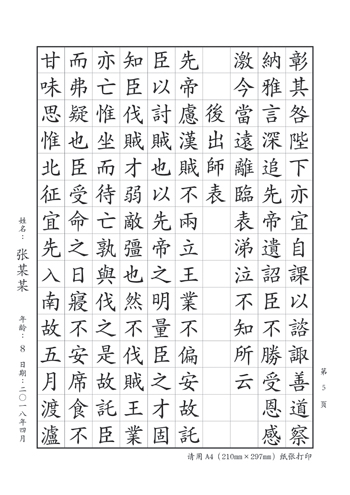 彰其咎陛下亦宜自課以諮諏善道察
納雅言深追先帝遺詔臣不勝受恩感
激今當遠離臨表涕泣不知所云
後出師表
先帝慮漢賊不兩立王業不偏安故託
臣以討賊也以先帝之明量臣之才固
知臣伐賊才弱敵彊也然不伐賊王業
亦亡惟坐而待亡孰與伐之是故託臣
而弗疑也臣受命之日寢不安席食不
甘味思惟北征宜先入南故五月渡瀘
姓名：张某某 年龄：8 日期：二〇一八年四月
第5页
请用A4（210mm×297mm）纸张打印